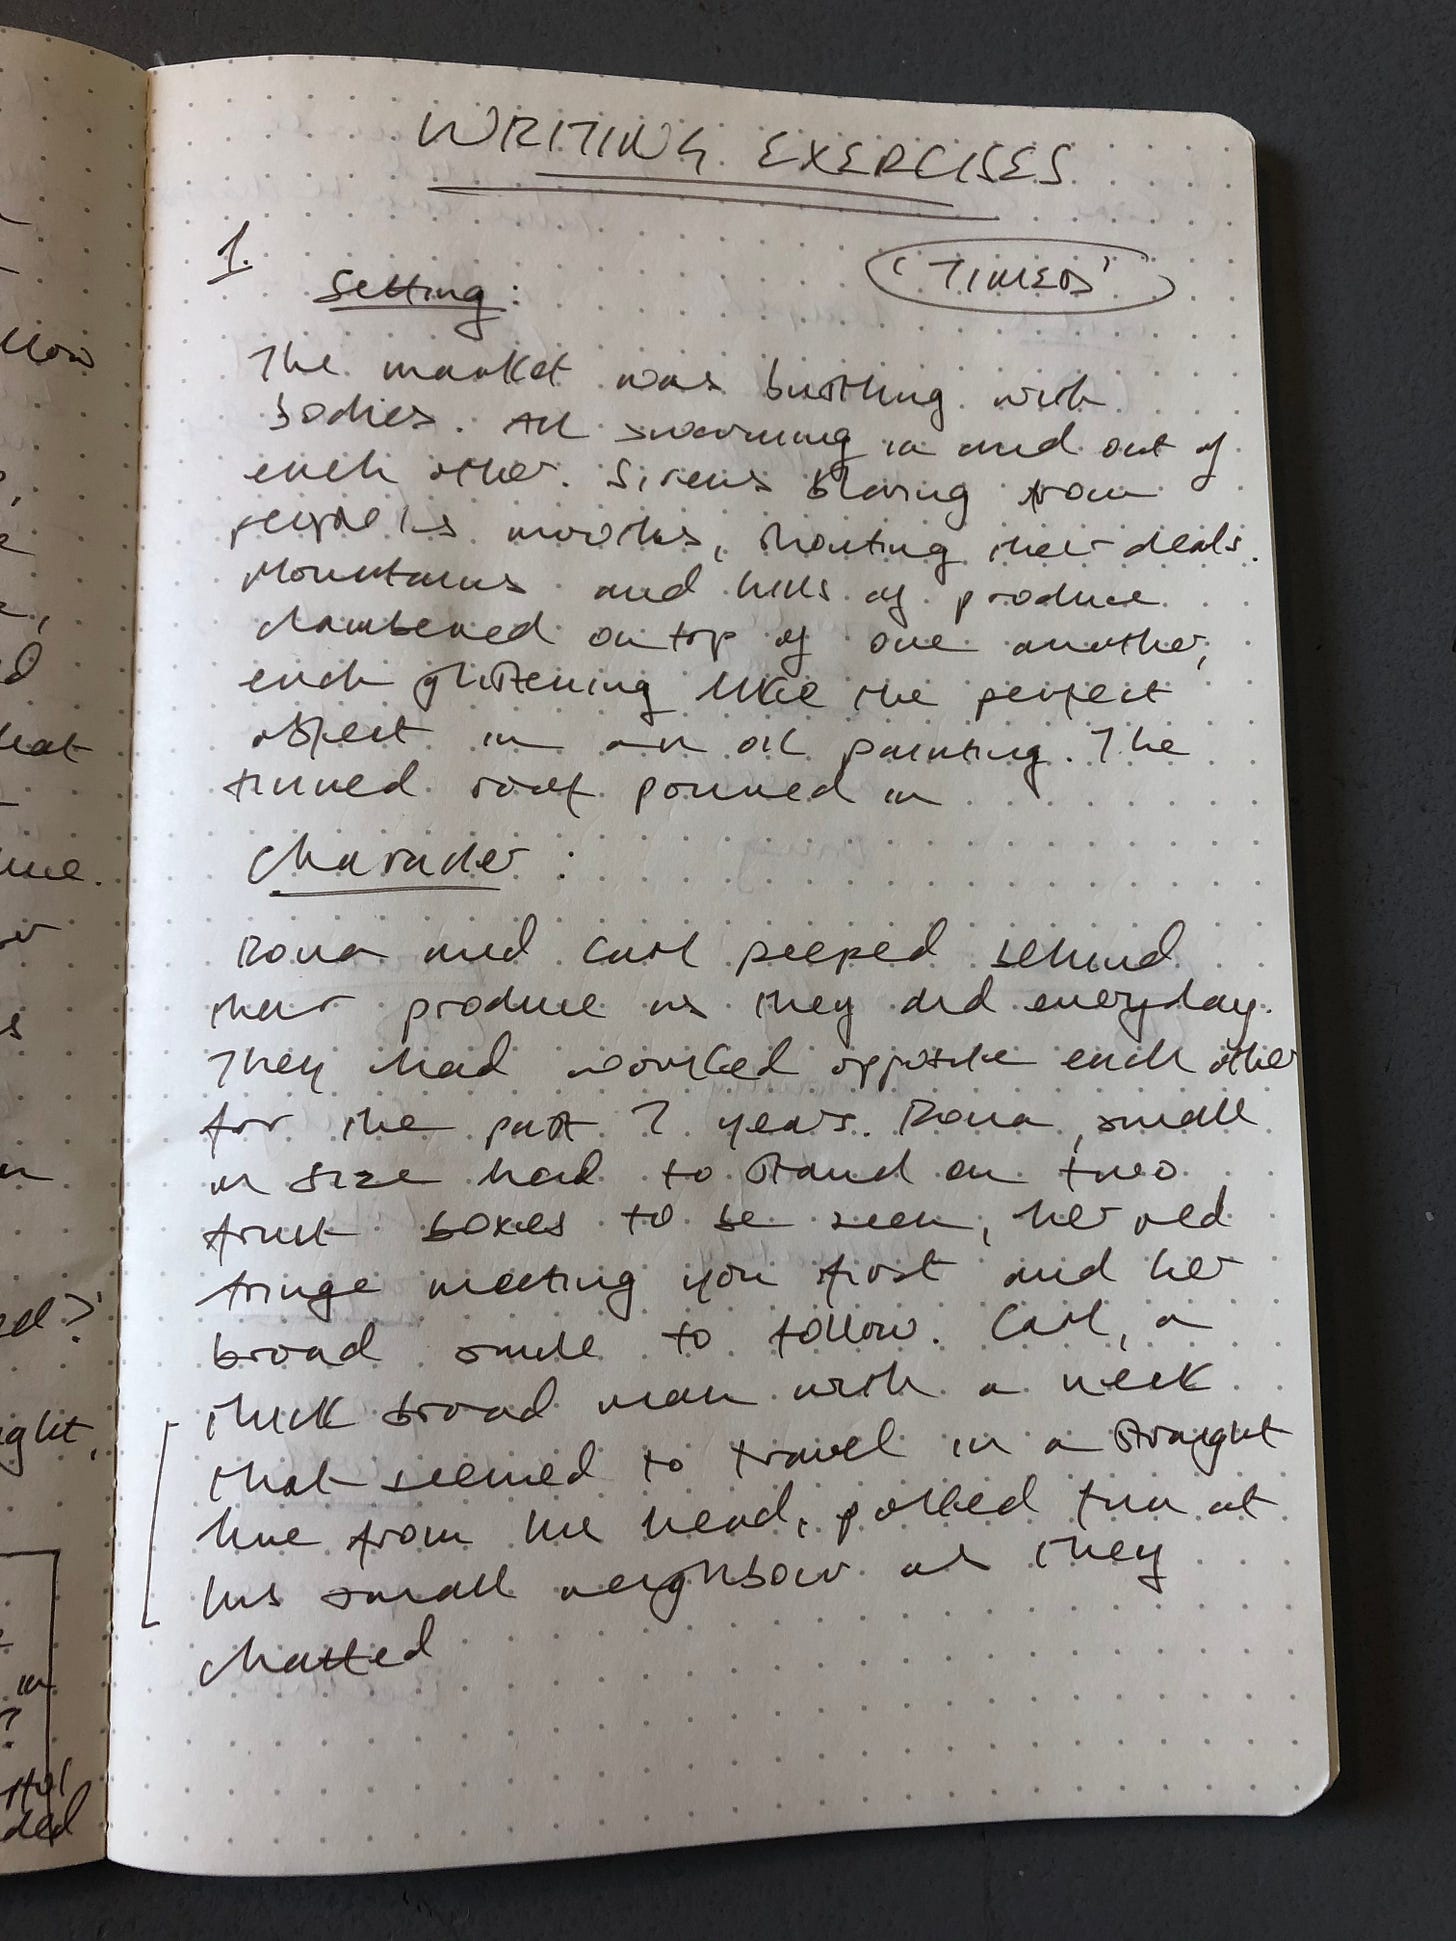 WRITING EXERCISES
1.
Setting:
('TIMED')
The market was bustling with
bodies. All swarming in and out of
each other. Sirens blaring from
people's mouths, shouting their deals.
Mountains and hills of produce
clambered on top of one another,
each glistening like the perfect
object in an oil painting. The
tinned roof poured in
Character:
Rona and Carl peeped behind
their produce as they did everyday.
They had worked opposite each other
for the past 7 years. Rona, small
in size had to stand on two
fruit boxes to be seen, her red
fringe meeting you first and her
broad smile to follow. Carl, a
thick broad man with a neck
that seemed to travel in a straight
line from his head, polled fun at
his small neighbour as they
chatted